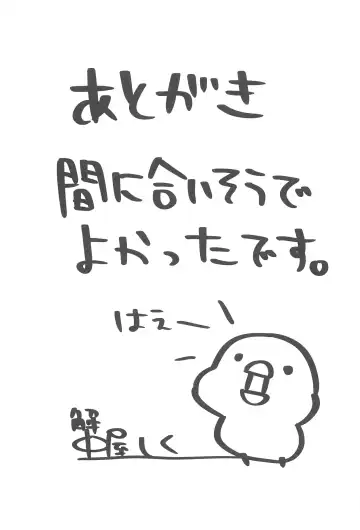 あとがき
間に合いそうで
よかったです。
はえー
解
中屋しく